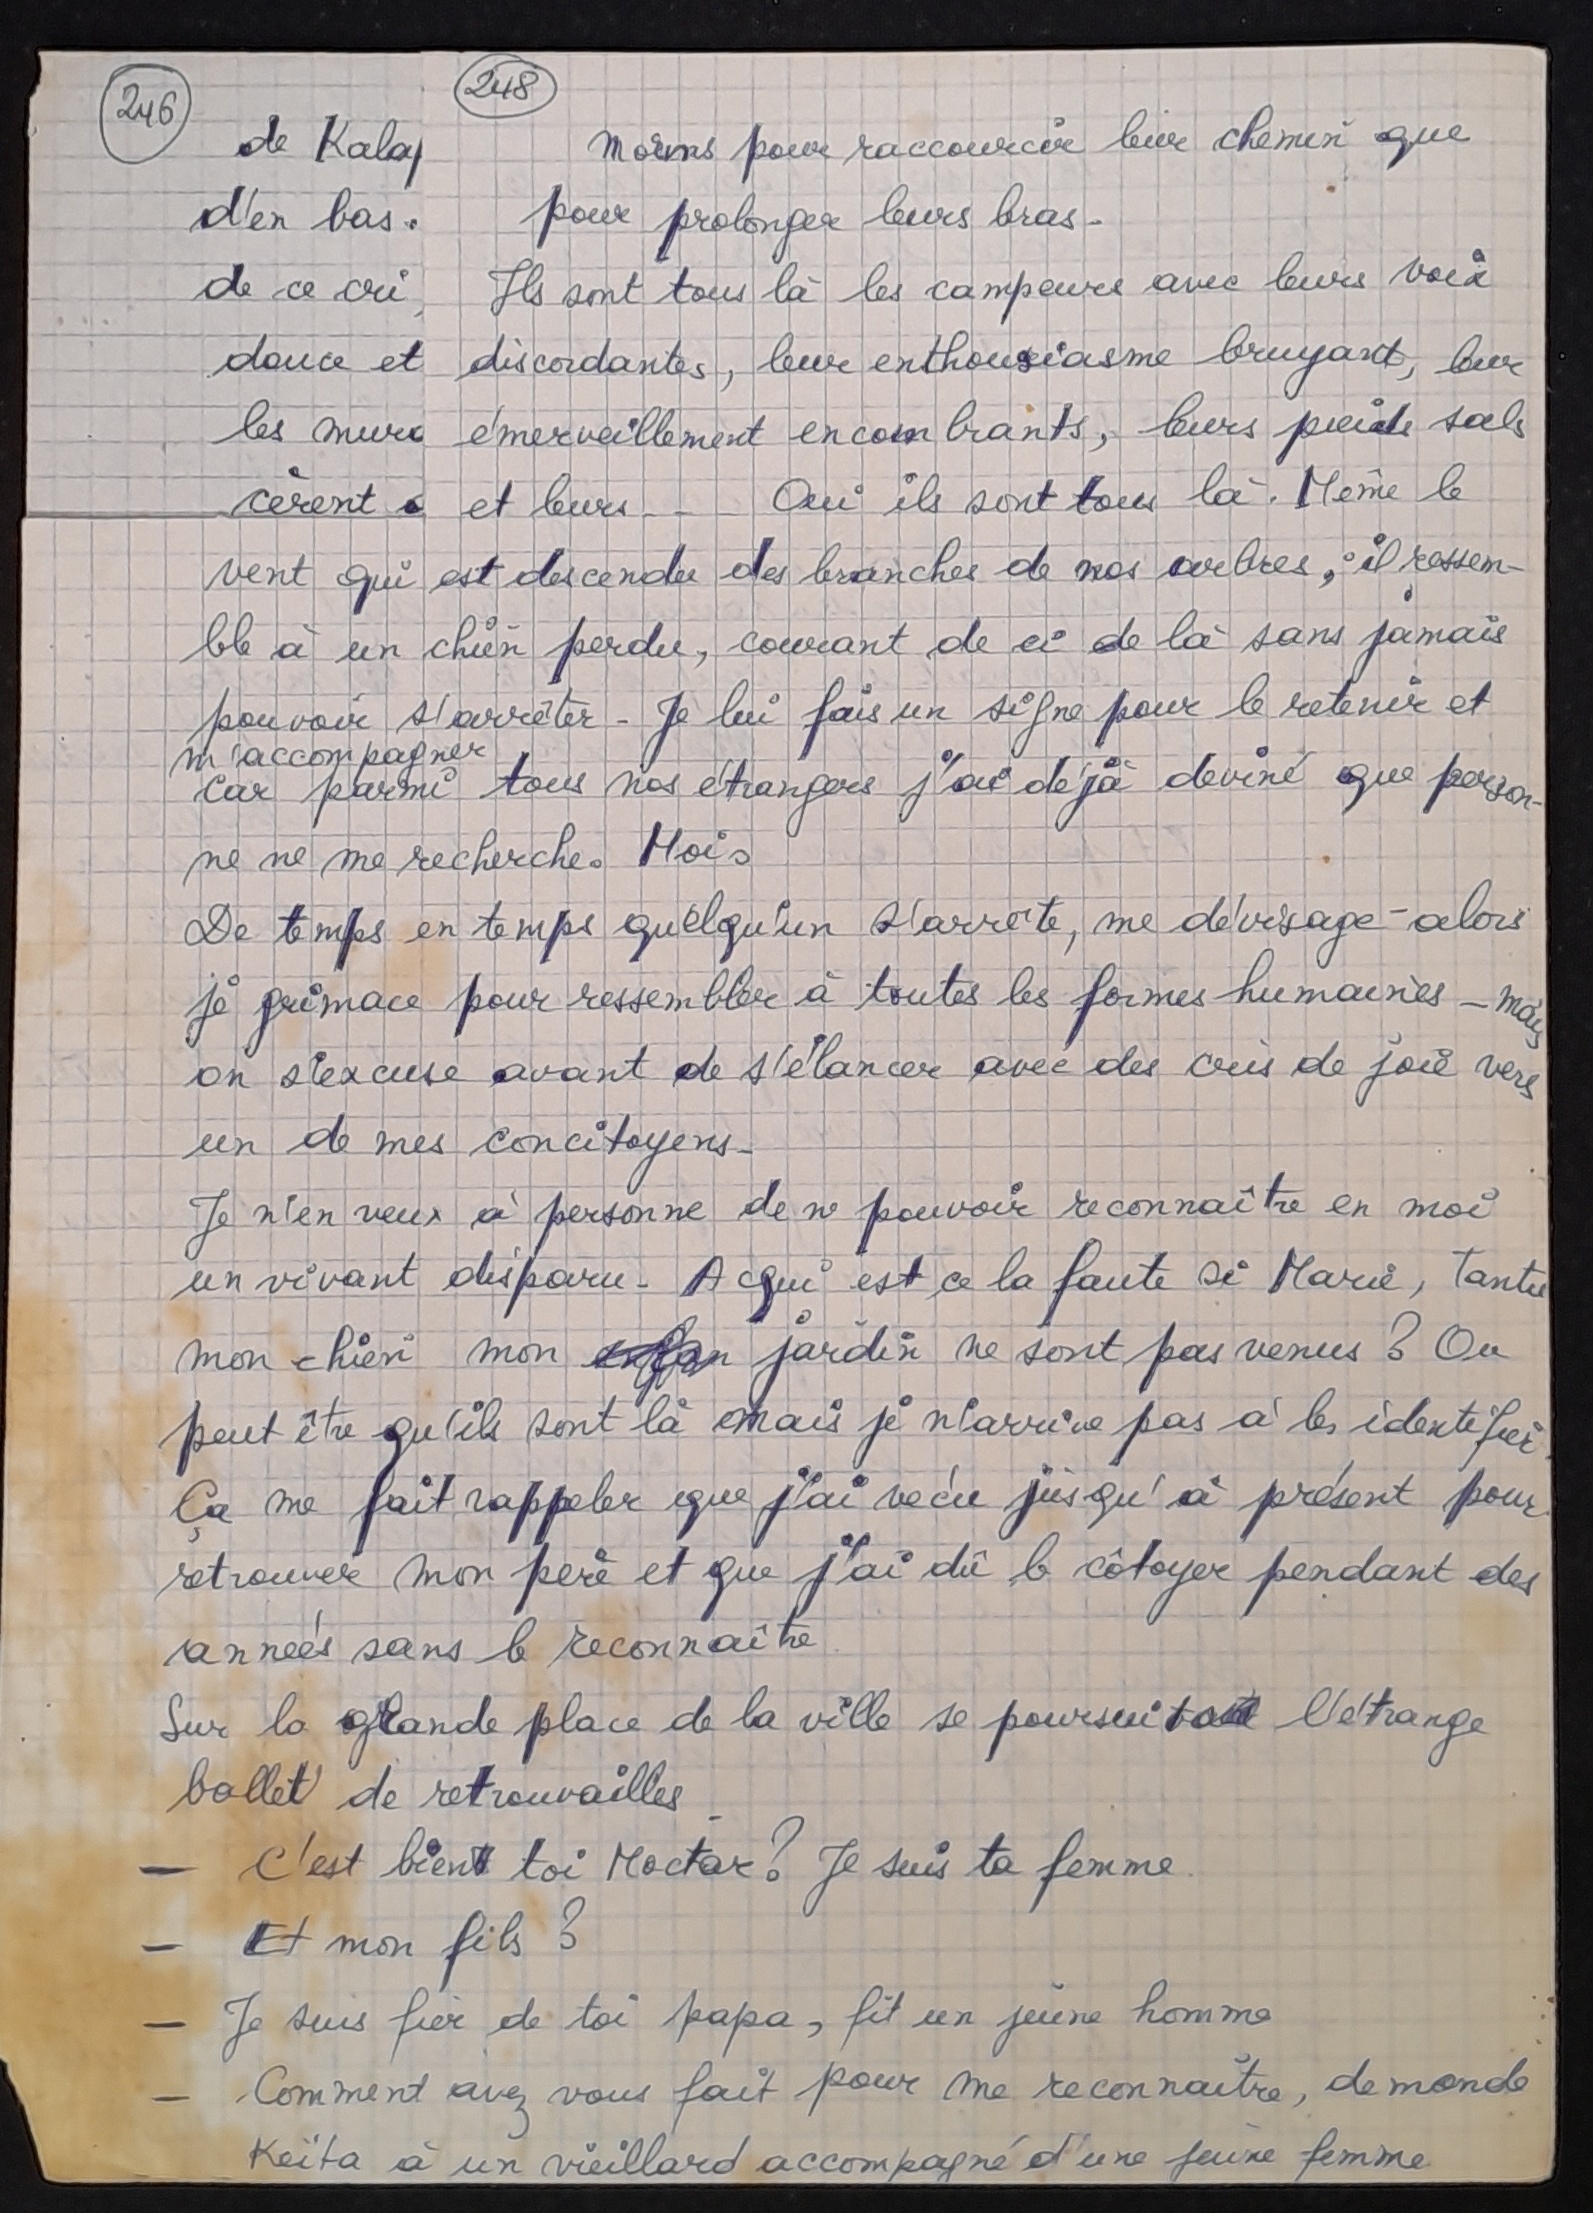 246
de Kala
d'en bas.
de ce cri,
douce et
les murs
cèrent
248
moins pour raccourcir leur chemin que
pour prolonger leurs bras -
Ils sont tous là les campeurs avec leurs voix
discordantes, leur enthousiasme bruyant, leur
émerveillement encombrants, leurs pieds sals
et leurs - - Oui ils sont tous là. Même le
vent qui est descendu des branches de nos arbres, il ressem-
ble à un chien perdu, courant de ci de là sans jamais
pouvoir s'arrêter - Je lui fais un signe pour le retenir et
m'accompagner
Car parmi tous nos étrangers j'ai déjà deviné que person-
ne ne me recherche. Moi.
De temps en temps quelqu'un s'arrête, me dévisage - alors
je grimace pour ressembler à toutes les formes humaines - mais
on s'excuse avant de s'élancer avec des cris de joie vers
un de mes concitoyens -
Je n'en veux à personne de ne pouvoir reconnaître en moi
un vivant disparu - A qui est ce la faute si Marie, Tantie
mon chien mon jardin ne sont pas venus ? Ou
peut être qu'ils sont là mais je n'arrive pas à les identifier.
Ça me fait rappeler que j'ai vécu jusqu'à présent pour
retrouver mon père et que j'ai dû le côtoyer pendant des
années sans le reconnaître.
Sur la grande place de la ville se poursuit l'étrange
ballet de retrouvailles -
— C'est bien toi Moctar ? Je suis ta femme.
— Et mon fils ?
— Je suis fier de toi papa, fit un jeune homme
— Comment avez vous fait pour me reconnaître, demande
Keïta à un vieillard accompagné d'une jeune femme